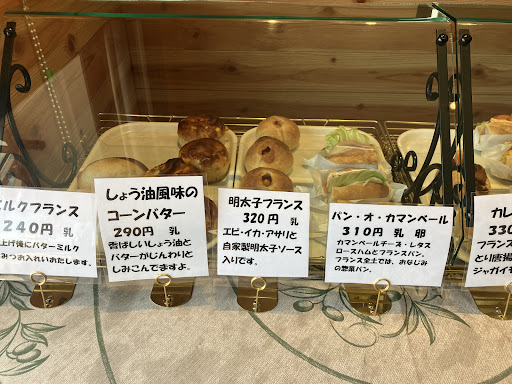 ミルクフランス
240円 乳
上げ後にバターミルク
みつお入れいたします。
しょう油風味の
コーンバター
290円 乳
香ばしいしょう油と
バターがじんわりと
しみこんでますよ。
明太子フランス
320円 乳
エビ・イカ・アサリと
自家製明太子ソース
入りです。
パン・オ・カマンベール
310円 乳 卵
カマンベールチーズ・レタス
ロースハムとフランスパン。
フランス全土では、おなじみ
の惣菜パン。
カレ
330
フランス
とり唐揚
ジャガイモ